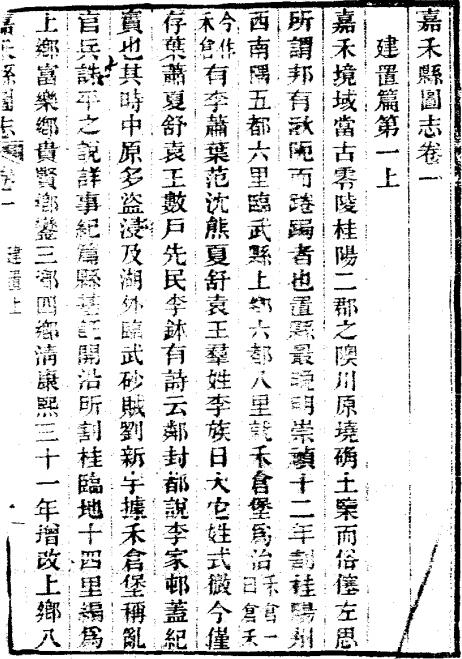 嘉禾縣圖志卷一
建置篇第一上
嘉禾境域當古零陵桂陽二郡之隩川原墝确土窳而俗僿左思
所謂邦有湫阨而踡跼者也置縣最晚明崇禎十二年割桂陽州
西南隅五都六里臨武縣上鄉六都八里就禾倉堡爲治禾倉一曰倉禾
今作禾倉有李蕭葉范沈熊夏舒袁王羣姓李族日大它姓式微今僅
存葉蕭夏舒袁王數戶先民李鉢有詩云鄰封都說李家邨蓋紀
實也其時中原多盜浸及湖外臨武砂賊劉新宇據禾倉堡稱亂
官兵誅平之說詳事紀篇縣基訖開沿所割桂臨地十四里編爲
上鄉富樂鄉貴賢鄉鑾三鄉四鄉清康熙三十一年增改上鄉八
嘉禾縣圖志 卷一 建置上 一